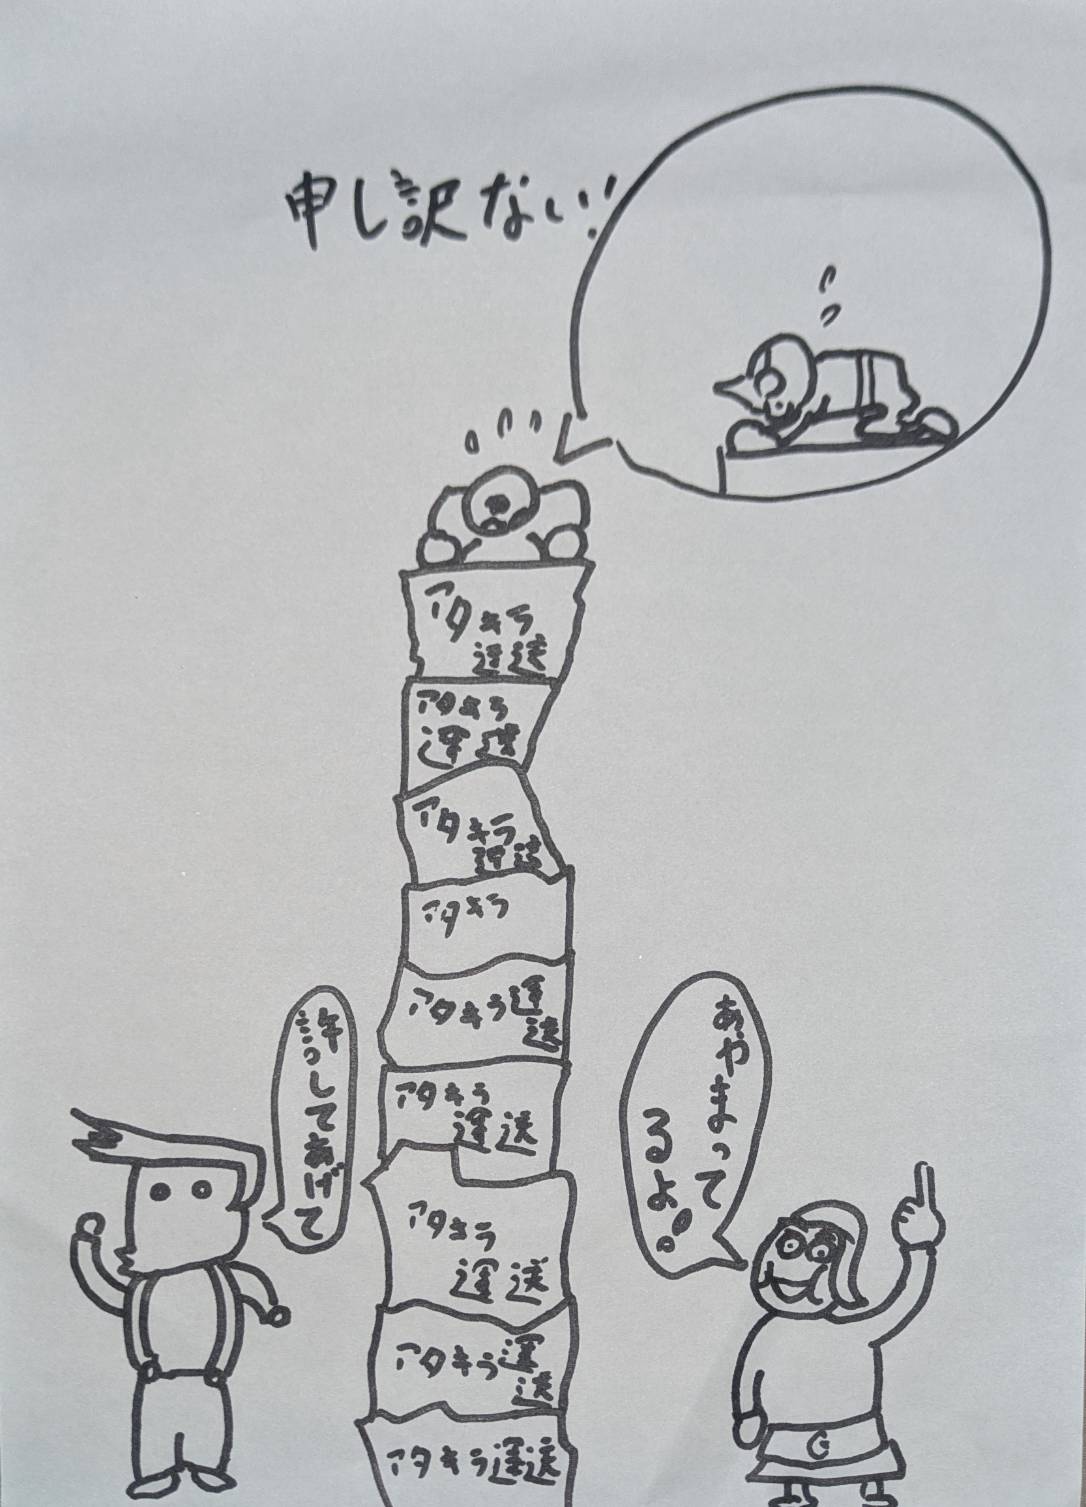 申し訳ない!
アタキラ
運送
アタキラ
運送
アタキラ
運送
アタキラ
アタキラ運
送
アタキラ
運送
アタキラ
運送
アタキラ運
送
アタキラ運送
許してあげて
あやまって
るよ。
G